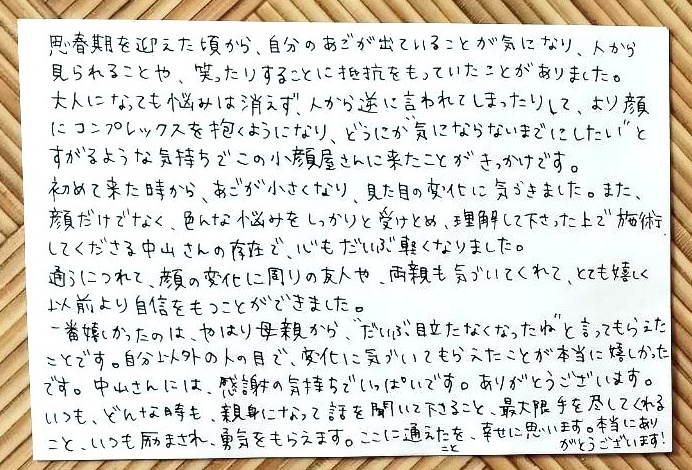 思春期を迎えた頃から、自分のあごが出ていることが気になり、人から
見られることや、笑ったりすることに抵抗をもっていたことがありました。
大人になっても悩みは消えず、人から逆に言われてしまったりして、より顔
にコンプレックスを抱くようになり、どうにか"気にならないまでにしたい"と
すがるような気持ちでこの小顔屋さんに来たことがきっかけです。
初めて来た時から、あごが小さくなり、見た目の変化に気づきました。また、
顔だけでなく、色んな悩みをしっかりと受けとめ、理解して下さった上で施術
してくださる中山さんの存在で、心もだいぶ軽くなりました。
通うにつれて、顔の変化に周りの友人や、両親も気づいてくれて、とても嬉しく
以前より自信をもつことができました。
一番嬉しかったのは、やはり母親から、"だいぶ目立たなくなったね"と言ってもらえた
ことです。自分以外の人の目で、変化に気づいてもらえたことが本当に嬉しかった
です。中山さんには、感謝の気持ちでいっぱいです。ありがとうございます。
いつも、どんな時も、親身になって話を聞いて下さること、最大限手を尽してくれる
こと、いつも励まされ、勇気をもらえます。ここに通えたことを、幸せに思います。本当にあり
がとうございます!